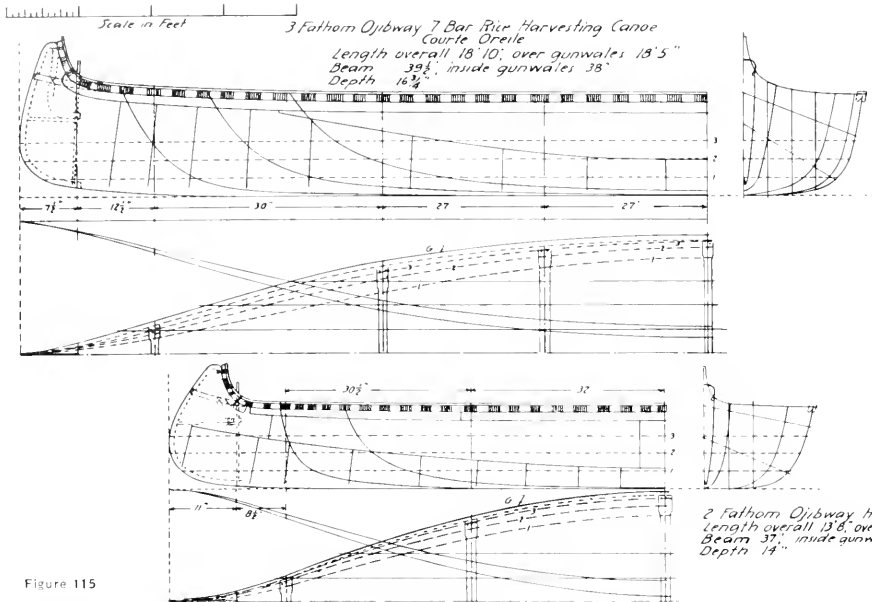 Scale in Feet
3 Fathom Ojibway 7 Bar Rice Harvesting Canoe
Courte Oreile
Length overall 18'10", over gunwales 18'5"
Beam 39½", inside gunwales 38"
Depth 16¾"
3
2
1
7½"
12½"
30"
27"
27"
G
3
2
1
3
2
1
30½"
32"
3
2
1
11"
8½"
G
3
2
1
2 Fathom Ojibway H
Length overall 13'8", ove
Beam 37", inside gunw
Depth 14"
Figure 115